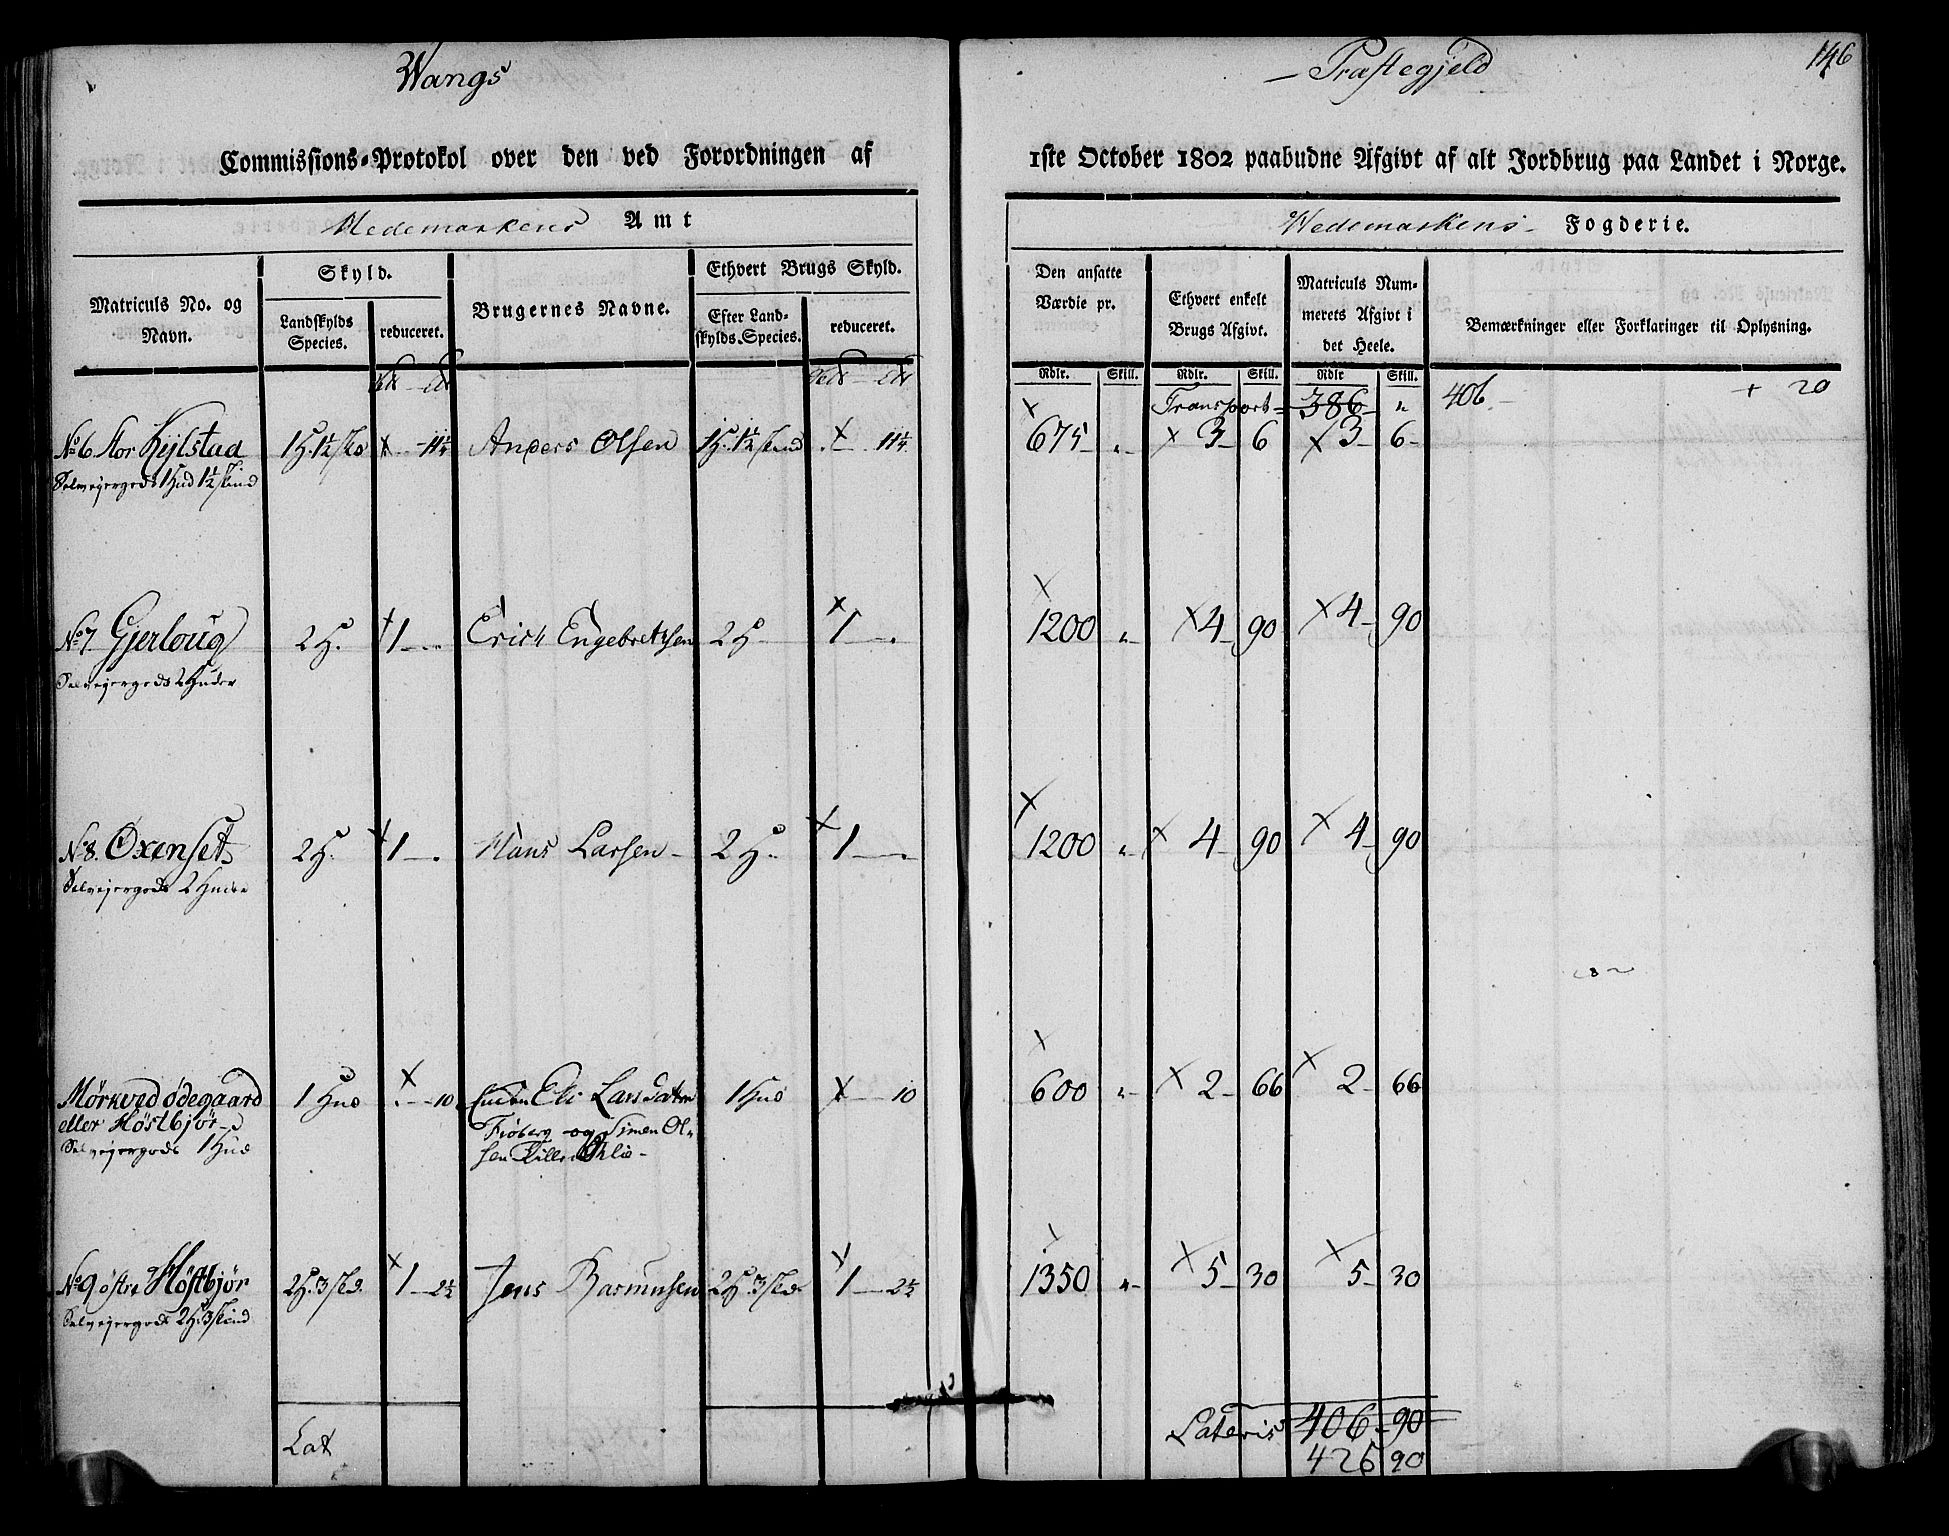 Wangs
– Præstegjeld
146
Commissions-Protokol over den ved Forordningen af
1ste October 1802 paabudne Afgivt af alt Jordbrug paa Landet i Norge.
Hedemarkens Amt
Hedemarkens Fogderie.
Matriculs No. og Navn.
Skyld.
Landskylds Species.
reduceret.
Brugernes Navne.
Ethvert Brugs Skyld.
Efter Landskylds Species.
reduceret.
Den ansatte Værdie pr.
Ethvert enkelt Brugs Afgivt.
Matriculs Nummerets Afgivt i det Heele.
Bemærkninger eller Forklaringer til Oplysning.
Rdlr. Skill. Rdlr. Skill. Rdlr Skill.
Transport = 386 „ 406 – + 20
No 6 Stor Kejlstad 1 H. 1½ skd x – 11¼ Anders Olsen 1 H. 1½ skind x – 11¼ x 675 – „ x 3 – 6 x 3 – 6
Selvejergods 1 Hud 1½ skind
No 7 Gjerloug 2 H. x 1 – „ Erich Engebretsen 2 H x 1 – „ x 1200 „ x 4 – 90 x 4 – 90
Selvejergods 2 Huder
No 8. Oxenset 2 H. x 1 – „ Hans Larsen – 2 H. x 1 – „ x 1200 „ x 4 – 90 x 4 – 90
Selvejergods 2 Huder
Mörkved ödegaard 1 Hud x – 10 Enken Eli Larsdatter 1 Hud x – 10 x 600 „ x 2 – 66 x 2 – 66
eller Höstbjör Frøberg og Simen Ol-
Selvejergods 1 Hud sen
No 9 östre Höstbjör 2 H. 3 skd. x 1 – 2½ Jens Rasmusen 2 H. 3 skd x 1 – 2½ x 1350 „ x 5 – 30 x 5 – 30
Selvejergods 2 H 3 skind
Lat
Lateris 406 – 90
426 90